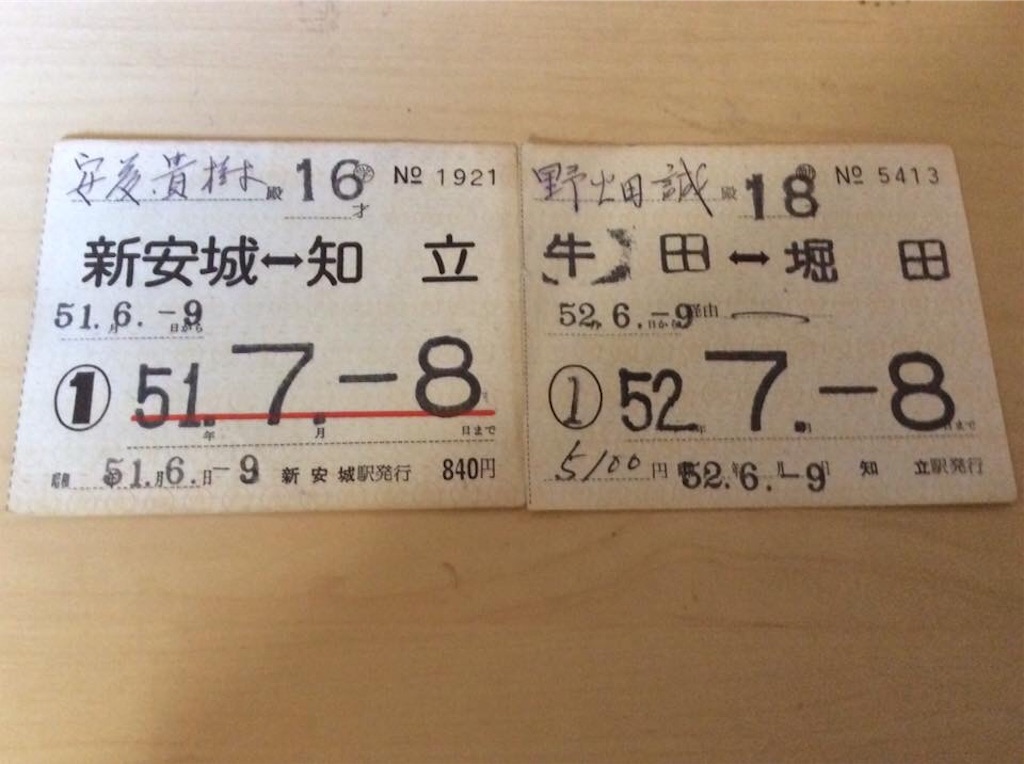 安彦貴樹殿 16才 № 1921
新安城↔知立
51.6.-9
月 日から
① 51.7.-8
年 月 日まで
昭和 51.6.-9 月 日 新安城駅発行 840円
野田誠殿 18 № 5413
牛田↔堀田
52.6.-9 日から 経由
① 52.7.-8
年 月 日まで
5100円 52.6.-9 知立駅発行